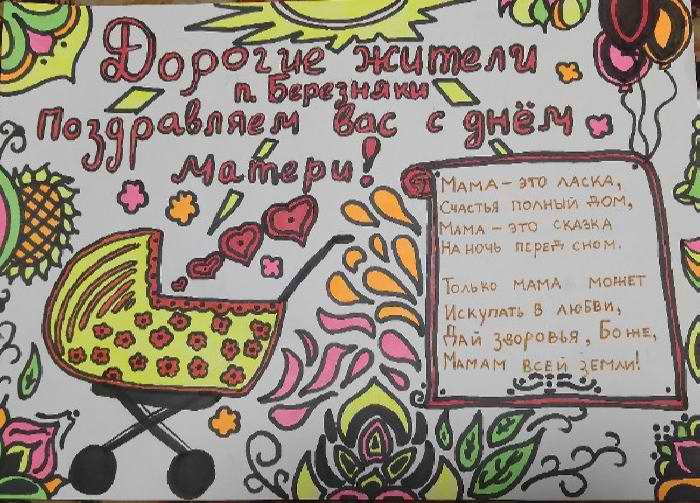 Дорогие жители
п. Березняки
Поздравляем вас с днём
матери!
Мама – это ласка,
Счастья полный дом,
Мама – это сказка
На ночь перед сном.
Только мама может
Искупать в любви,
Дай здоровья, Боже,
Мамам всей земли!